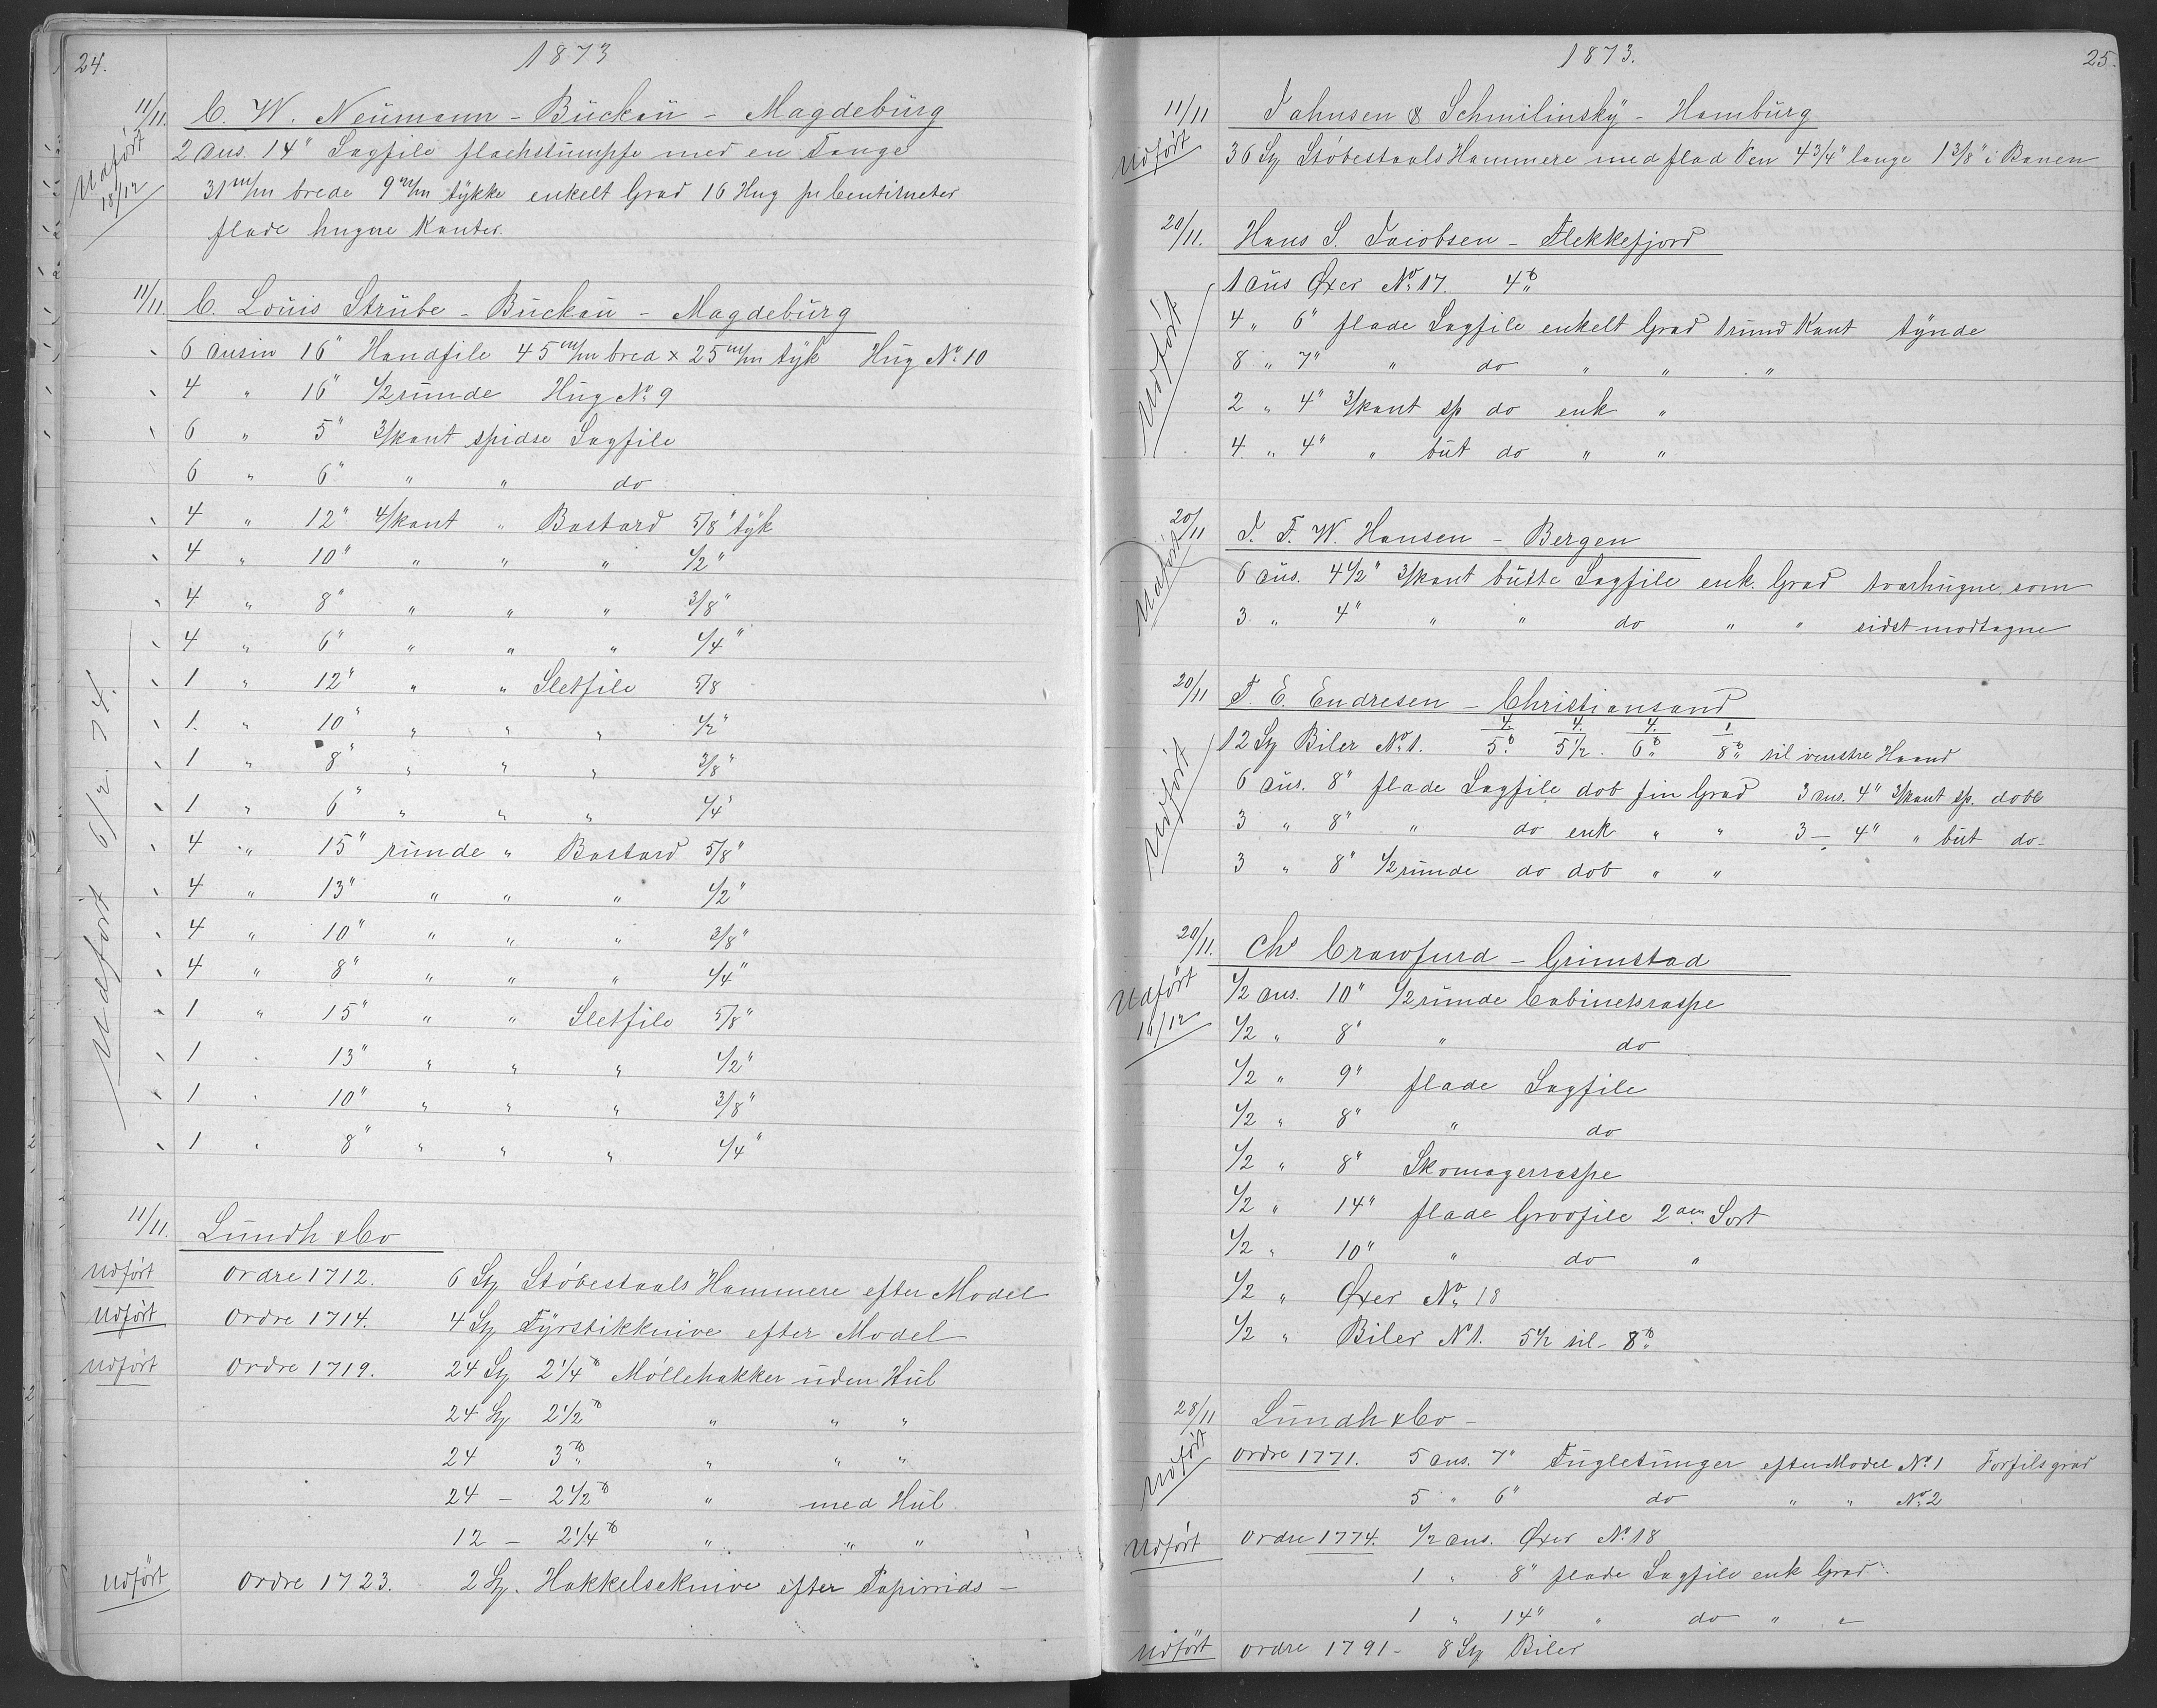 24.
1873
11/11. C. W. Neumann - Buckau - Magdeburg
Udført 18/12
2 dus. 14" Sagfile flachstumpfe med en Tange
31 m/m brede 9 m/m tykke enkelt Grad 16 Hug pr Centimeter
flade hugne Kanter.
11/11. C. Louis Strübe - Buckau - Magdeburg
Udført 6/2 74.
6 dusin 16" Handfile 45 m/m bred x 25 m/m tyk Hug No. 10
4 " 16" 1/2 runde Hug No. 9
6 " 5" 3/kant spidse Sagfile
6 " 6" " " do
4 " 12" 4/kant " Bastard 5/8" tyk
4 " 10" " " " 1/2"
4 " 8" " " " 3/8"
4 " 6" " " " 1/4"
1 " 12" " " Sletfile 5/8
1. " 10" " " " 1/2"
1 " 8" " " " 3/8"
1 " 6" " " " 1/4"
4 " 15" runde " Bastard 5/8"
4 " 13" " " " 1/2"
4 " 10" " " " 3/8"
4 " 8" " " " 1/4"
1 " 15" " " Sletfile 5/8"
1 " 13" " " " 1/2"
1 " 10" " " " 3/8"
1 " 8" " " " 1/4"
11/11. Lundh & Co
Udført Ordre 1712. 6 St Støbestaals Hammere efter Model
Udført Ordre 1714. 4 St Tyrstikknive efter Model
Udført Ordre 1719. 24 St 2 1/4 ℔ Møllehakker uden Hul
24 St 2 1/2 ℔ " " "
24 3 ℔ " " "
24 - 2 1/2 ℔ " med Hul
12 - 2 1/4 ℔ " " "
Udført Ordre 1723. 2 St. Hakkelseknive efter Papirrids -
1873.
25.
11/11 Jahnsen & Schmilinsky - Hamburg
Udført 36 St Støbestaals Hammere med flad Pen 4 3/4" lange 1 3/8" i Banen
20/11. Hans S. Jacobsen - Flekkefjord
Udført
1 dus Øxer No. 17. 4 ℔
4 " 6" flade Sagfile enkelt Grad rund Kant tynde
8 " 7" " do " " "
2 " 4" 3/kant sp do enk "
4 " 4" " but do " "
20/11 J. F. W. Hansen - Bergen
Udført
6 dus. 4 1/2" 3/kant butte Sagfile enk. Grad tværhugne som
3 " 4" " " do " " sidst modtagne
20/11 T. E. Endresen - Christiansand
Udført
4. 4. 4. 1
12 St Biler No. 1. 5 ℔ 5 1/2. 6 ℔ 8 ℔ til venstre Haand
6 dus. 8" flade Sagfile dob fin Grad 3 dus. 4" 3/kant sp. dobb
3 " 8" " do enk " " 3 - 4" " but do-
3 " 8" 1/2 runde do dob " "
20/11. Chs Crawfurd - Grimstad
Udført 16/12
1/2 dus. 10" 1/2 runde Cabinetsraspe
1/2 " 8" " do
1/2 " 9" flade Sagfile
1/2 " 8" " do
1/2 " 8" Skomagerraspe
1/2 " 14" flade Grovfile 2den Sort
1/2 " 10" " do "
1/2 " Øxer No. 18
1/2 " Biler No 1. 5 1/2 til 8 ℔
28/11 Lundh & Co -
Udført Ordre 1771. 5 dus. 7" Fugletunger efter Model No. 1 Forfilsgrad
5 " 6" do " " No. 2
Udført Ordre 1774. 1/2 dus. Øxer No. 18
1 " 8" flade Sagfile enk Grad.
1 " 14" " do " "
Udført Ordre 1791 - 8 St Biler